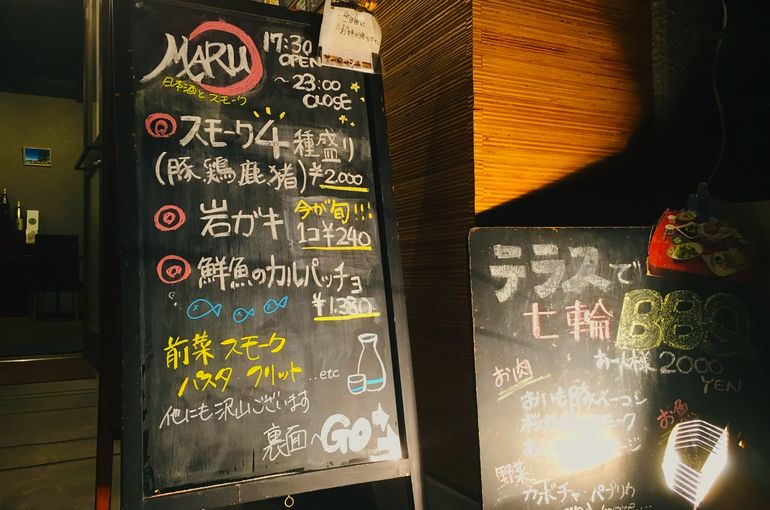 MARU
日本酒とスモーク
17:30
OPEN
~23:00
CLOSE
スモーク4種盛り
(豚、鶏、鹿、猪) ¥2.000
岩ガキ 今が旬!!!
1コ¥240
鮮魚のカルパッチョ
¥1.380
前菜 スモーク
パスタ・フリット...etc
他にも沢山ございます
裏面へGO
テラスで
七輪 BBQ
お一人様 2000
YEN
お肉
おいも豚ベーコン
お魚
野菜
カボチャ・パプリカ